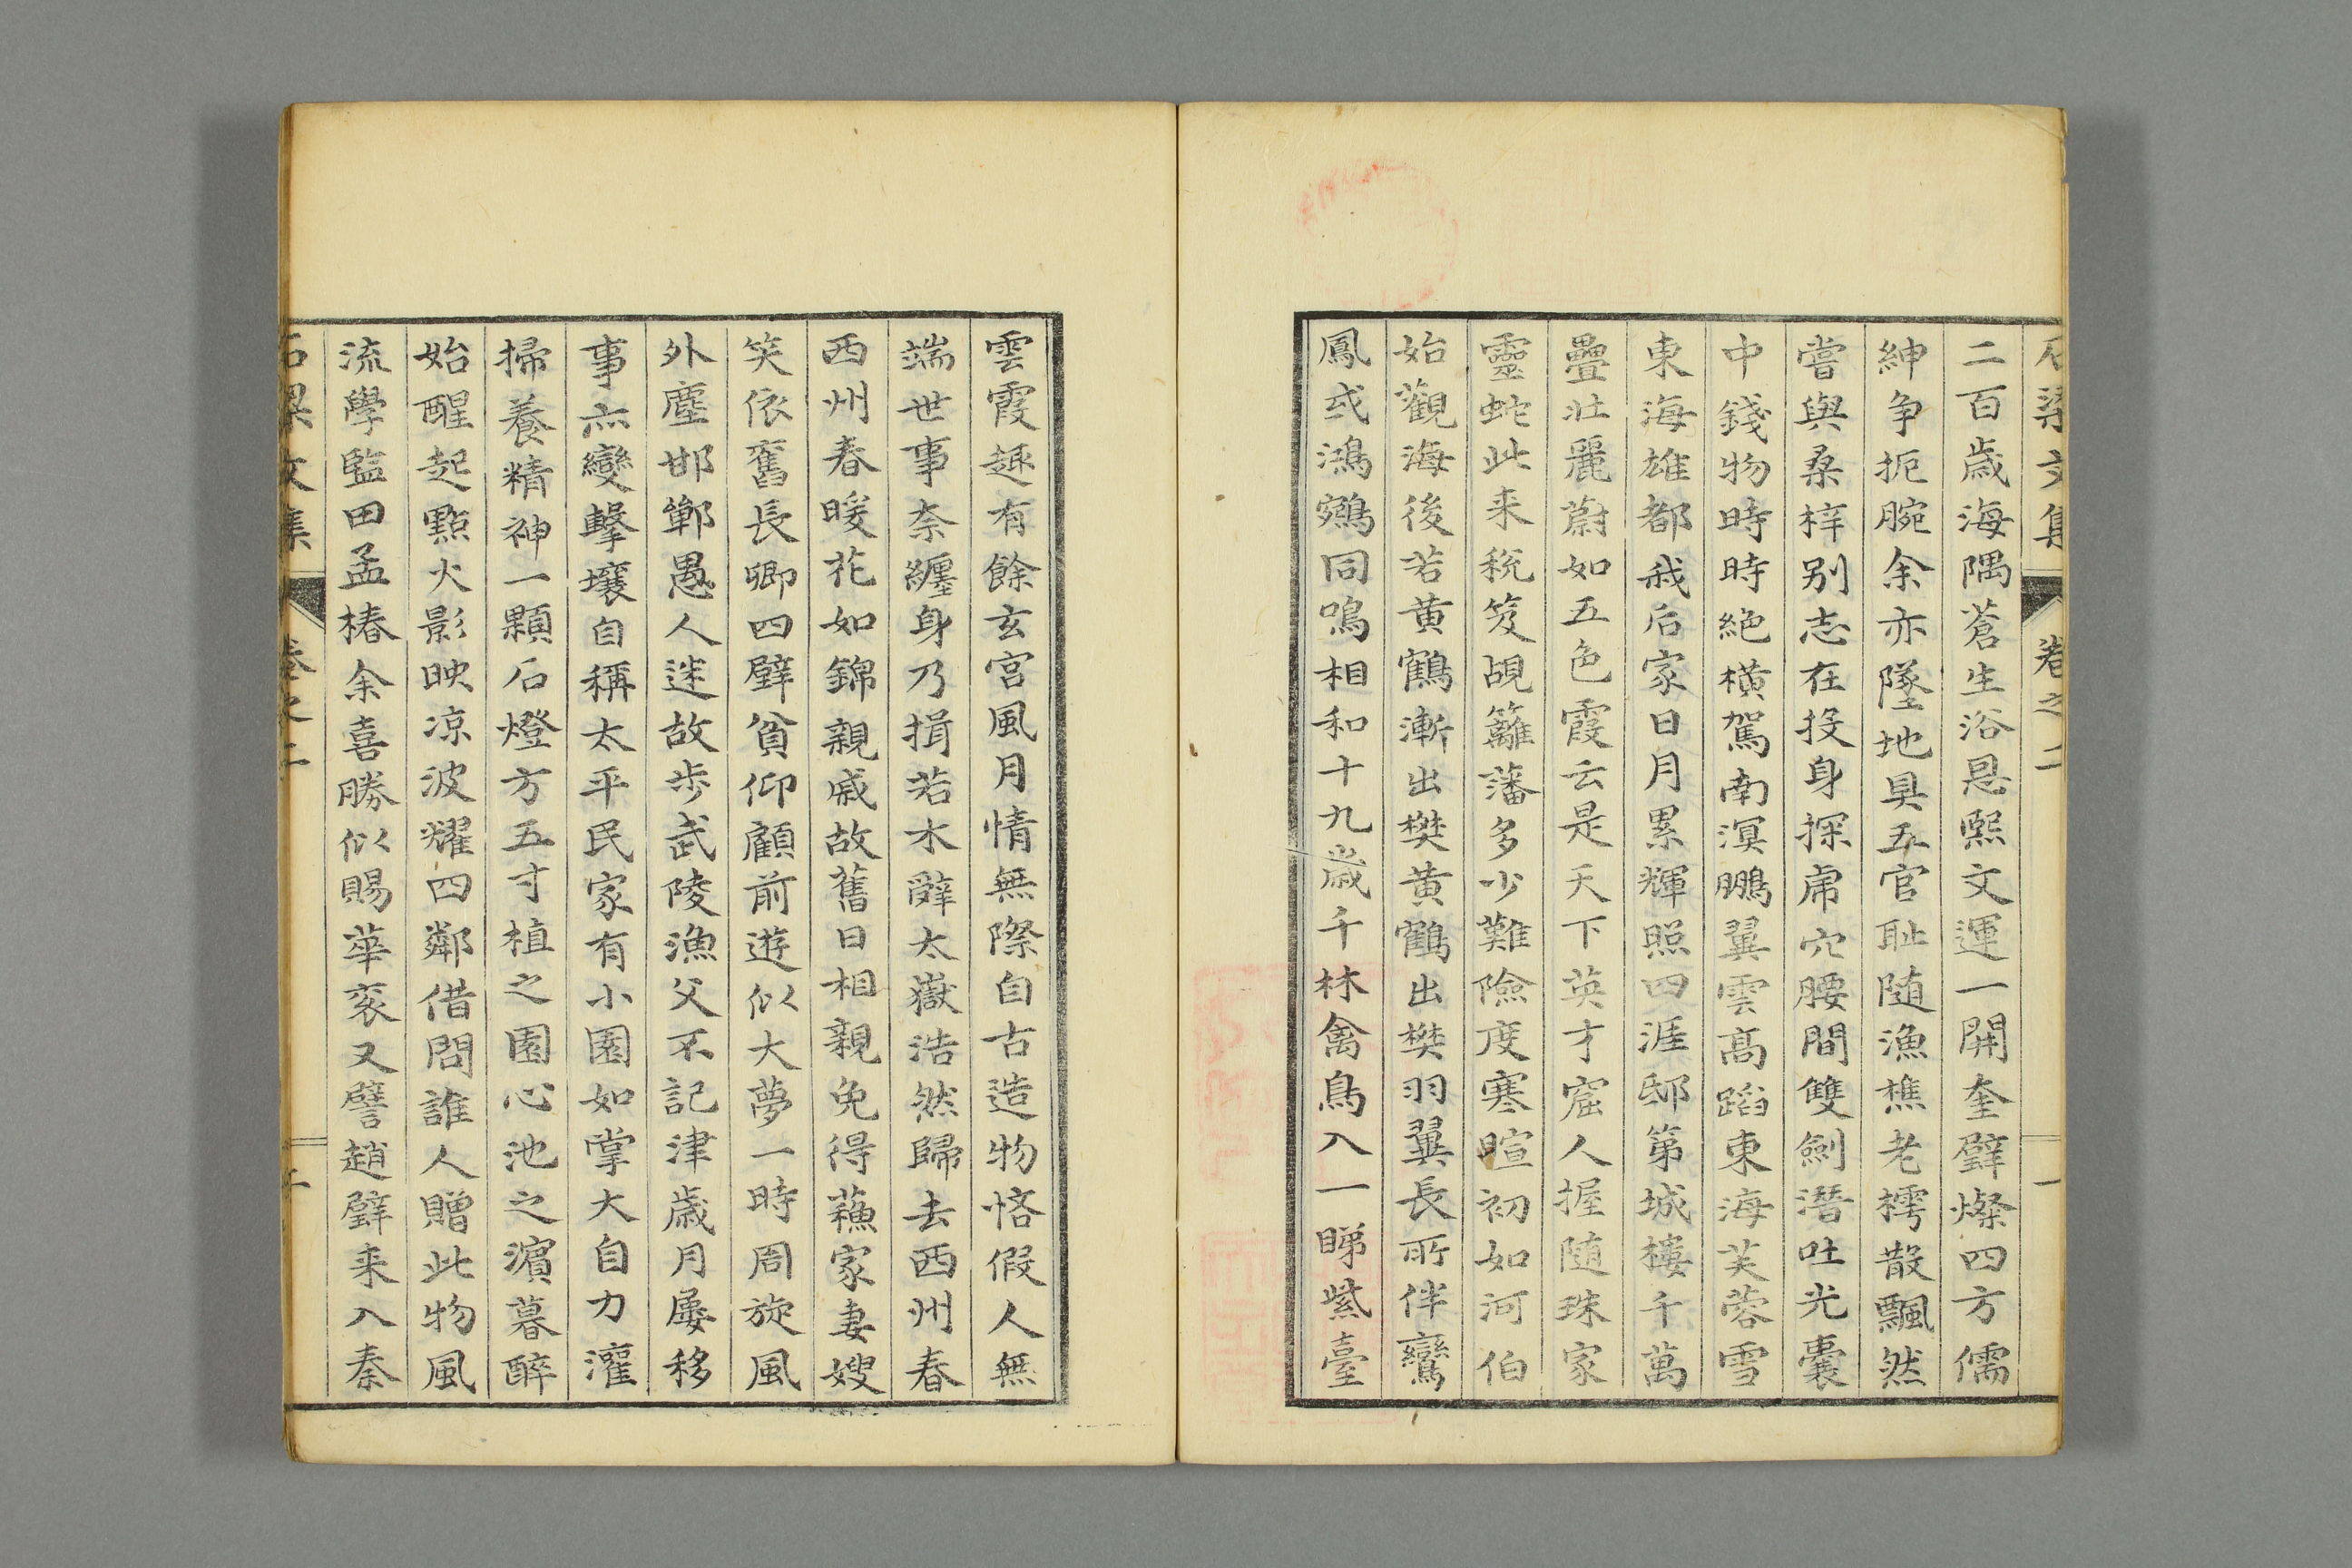 石梁文集 卷之二 一
二百歳海隅蒼生浴恩熈文運一開奎璧燦四方儒
紳争扼腕余亦墜地具五官耻随漁樵老樗散飄然
嘗與桑梓别志在投身探虎穴腰間雙劍潛吐光嚢
中錢物時時絶横駕南溟鵬翼雲髙蹈東海芙蓉雪
東海雄都我后家日月累輝照四涯邸第城樓千萬
疊壯麗蔚如五色霞云是天下英才窟人握随珠家
靈蛇此来税笈覘籬藩多少難險度寒暄初如河伯
始觀海後若黄鶴漸出樊黄鶴出樊羽翼長所伴鸞
鳳或鴻鵷同鳴相和十九歳千林禽鳥入一睇紫臺
雲霞趣有餘玄宮風月情無際自古造物悋假人無
端世事奈纏身乃揖若木辭太嶽浩然歸去西州春
西州春暖花如錦親戚故舊日相親免得蘓家妻嫂
笑依舊長卿四壁貧仰顧前遊似大夢一時周旋風
外塵邯鄲愚人迷故歩武陵漁父不記津歳月屡移
事亦變擊壤自稱太平民家有小園如掌大自力灌
掃養精神一顆石燈方五寸植之園心池之濵暮醉
始醒起點火影映凉波耀四鄰借問誰人贈此物風
流學監田孟椿余喜勝似賜華衮又譬趙璧来入秦
石梁文集 卷之二